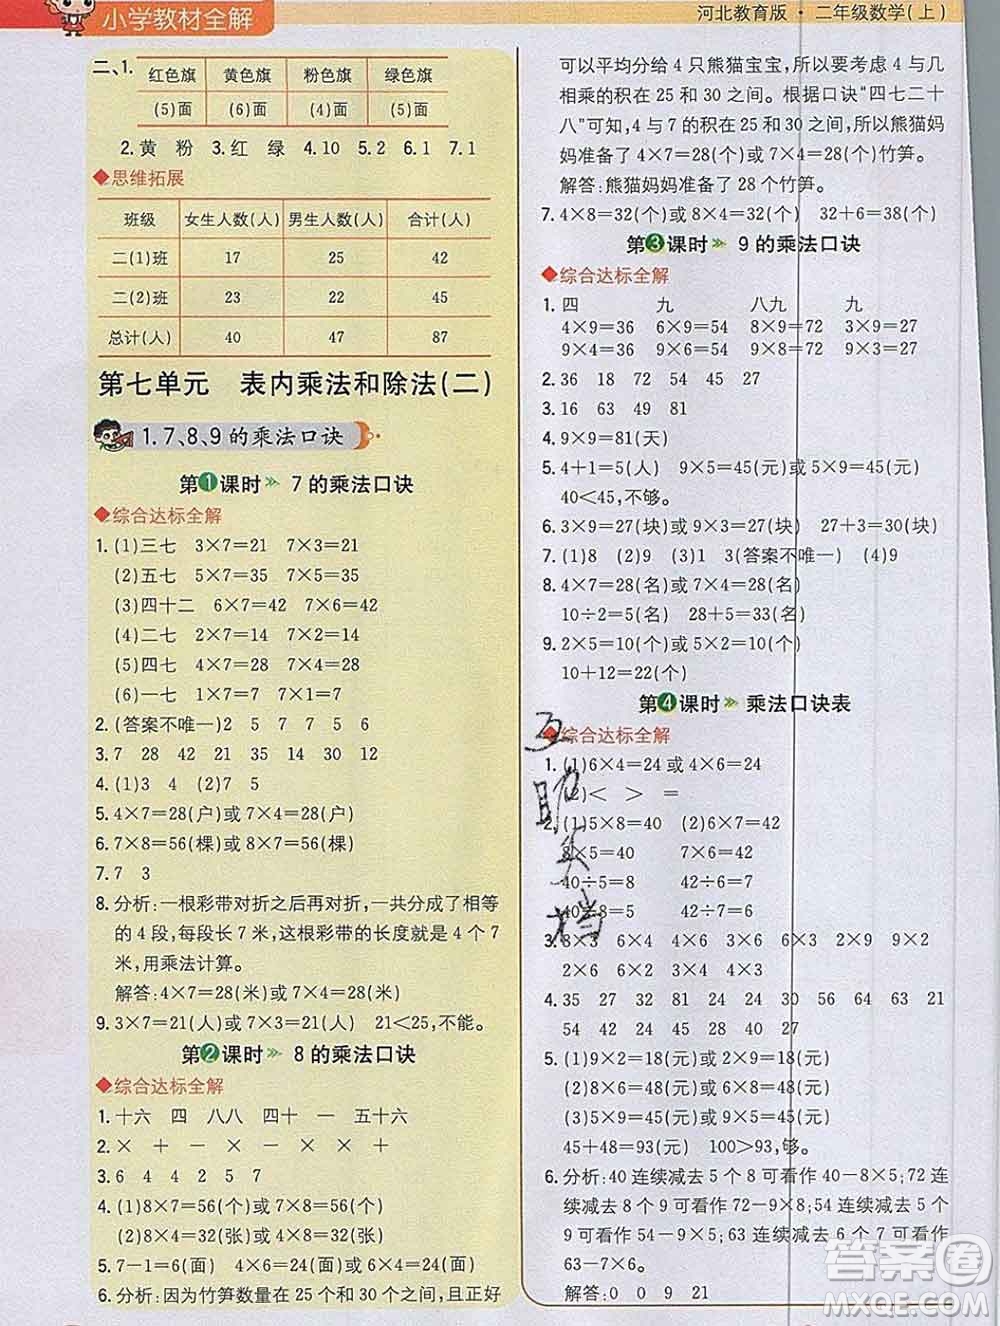 小学教材全解
河北教育版·二年级数学(上)
二、1.
红色旗 黄色旗 粉色旗 绿色旗
(5)面 (6)面 (4)面 (5)面
2.黄 粉 3.红 绿 4.10 5.2 6.1 7.1
◆思维拓展
班级 女生人数(人) 男生人数(人) 合计(人)
二(1)班 17 25 42
二(2)班 23 22 45
总计(人) 40 47 87
第七单元 表内乘法和除法(二)
1.7、8、9的乘法口诀
第1课时 7的乘法口诀
◆综合达标全解
1.(1)三七 3×7=21 7×3=21
(2)五七 5×7=35 7×5=35
(3)四十二 6×7=42 7×6=42
(4)二七 2×7=14 7×2=14
(5)四七 4×7=28 7×4=28
(6)一七 1×7=7 7×1=7
2.(答案不唯一)2 5 7 7 5 6
3.7 28 42 21 14 35 49
4.(1)3 4 (2)5 7
5.4×7=28(户)或7×4=28(户)
6.7×8=56(棵)或8×7=56(棵)
7.7 3
8.分析:一根彩带对折之后再对折,一共分成了相等
的4段,每段长7米,这根彩带的长度就是4个7
米,用乘法计算。
解答:4×7=28(米)或7×4=28(米)
9.3×7=21(人)或7×3=21(人) 21<25,不能。
第2课时 8的乘法口诀
◆综合达标全解
1.十六 四 八八 四十 一 五十六
2.× + × + - × × +
3.6 4 4 2 5 7
4.(1)8×7=56(个)或7×8=56(个)
(2)8×4=32(张)或4×8=32(张)
5.7-1=6(面) 4×6=24(面)或6×4=24(面)
6.分析:因为竹笋数量在25个和30个之间,且正好
可以平均分给4只熊猫宝宝,所以要考虑4与几
相乘的积在25和30之间。根据口诀“四七二十
八”可知,4与7的积在25和30之间,所以熊猫妈
妈准备了4×7=28(个)或7×4=28(个)竹笋。
解答:熊猫妈妈准备了28个竹笋。
7.4×8=32(个)或8×4=32(个) 32+6=38(个)
第3课时 9的乘法口诀
◆综合达标全解
1.四 九 八九 九
4×9=36 6×9=54 8×9=72 3×9=27
9×4=36 9×6=54 9×8=72 9×3=27
2.36 18 72 54 27
3.63 16 49 81
4.9×9=81(天)
5.4+1=5(人) 9×5=45(元)或5×9=45(元)
40<45,不够。
6.3×9=27(块)或9×3=27(块) 27+3=30(块)
7.(1)8 (2)9 (3)1 3(答案不唯一) (4)9
8.4×7=28(名)或7×4=28(名)
10÷2=5(名) 28+5=33(名)
9.2×5=10(个)或5×2=10(个)
10+12=22(个)
第4课时 乘法口诀表
◆综合达标全解
1.(1)6×4=24或4×6=24
(2)< > =
2.(1)5×8=40 (2)6×7=42
8×5=40 7×6=42
40÷5=8 42÷6=7
40÷8=5 42÷7=6
3.3×3 6×4 4×6 3×6 2×9 9×2
2×6 6×2 3×4 4×3
4.35 27 32 21 24 30 54 64 63 21
54 42 24 45 28 40 27
5.(1)9×2=18(元)或2×9=18(元)
(2)8×6=48(元)或6×8=48(元)
(3)5×9=45(元)或9×5=45(元)
45+48=93(元) 100>93,够。
6.分析:40连续减去5个8可看作40-8×5;72连
续减去8个9可看作72-9×8;54连续减去6个
9可看作54-9×6;63连续减去6个7可看作
63-7×6。
解答:0 0 9 21
互助文档
答案圈
MXQE.COM